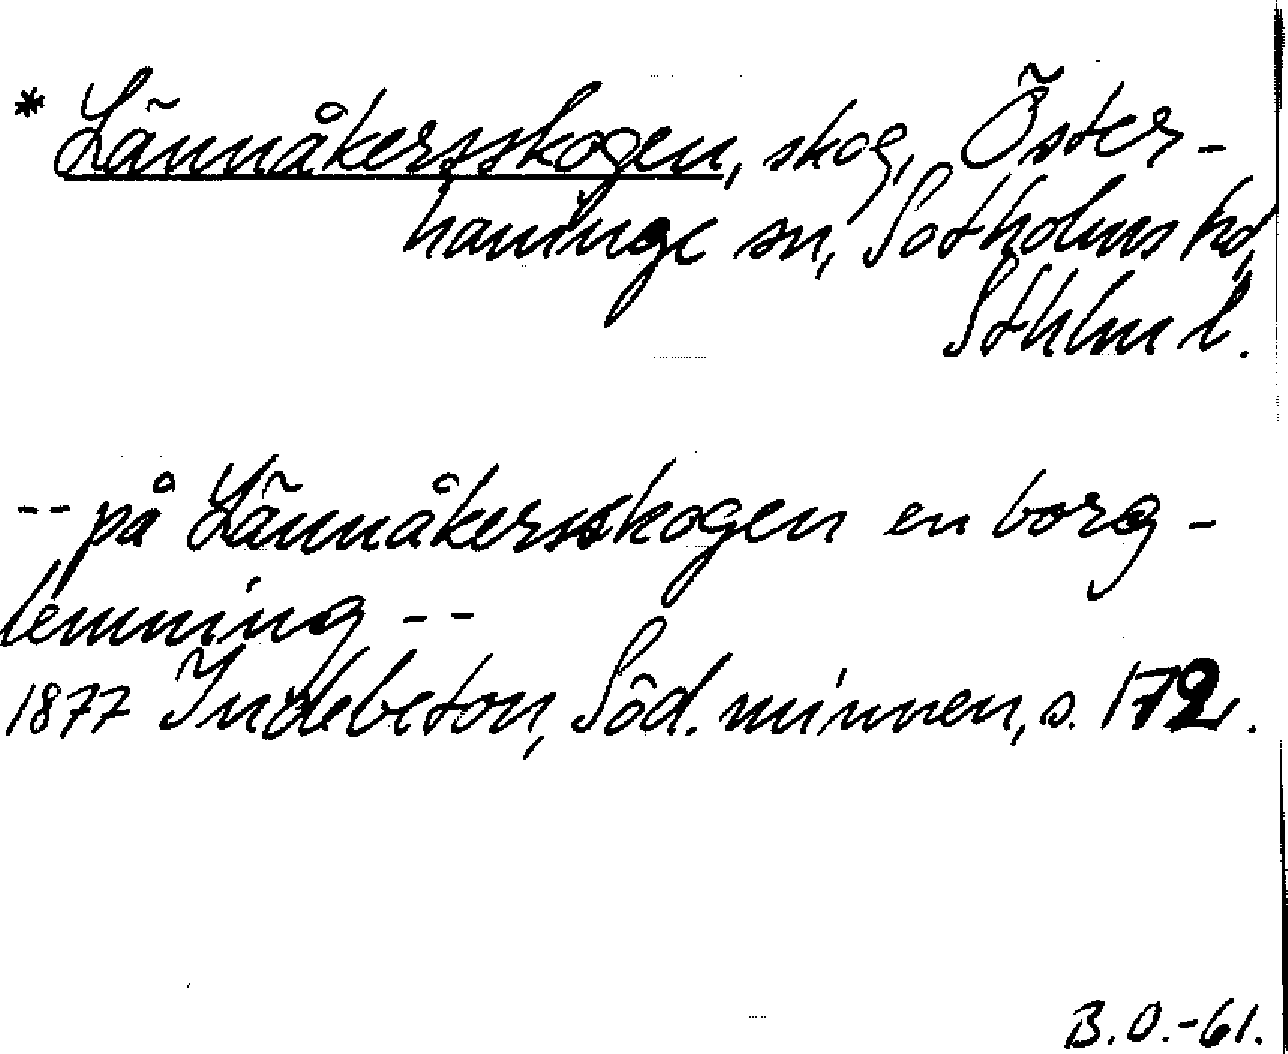 * Lännåkersskogen, skog, Öster-
haninge sn, Sotholms hd,
Sthlm l.
-- på Lännåkersskogen en borg-
lemning --
1877 Indebetou, Söd. minnen, s. 172.
B.O.-61.